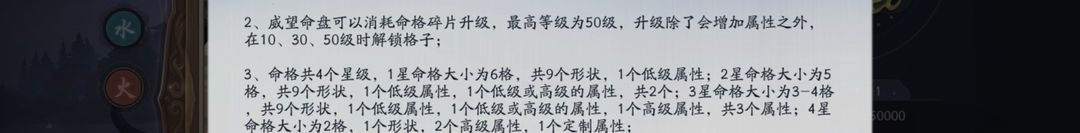 2、威望命盘可以消耗命格碎片升级，最高等级为50级，升级除了会增加属性之外，
在10、30、50级时解锁格子；
3、命格共4个星级，1星命格大小为6格，共9个形状，1个低级属性；2星命格大小为5
格，共9个形状，1个低级属性，1个低级或高级的属性，共2个；3星命格大小为3-4格
，共9个形状，1个低级属性，1个低级或高级的属性，1个高级属性，共3个属性；4星
命格大小为2格，1个形状，2个高级属性，1个定制属性；
水
火
1
50000